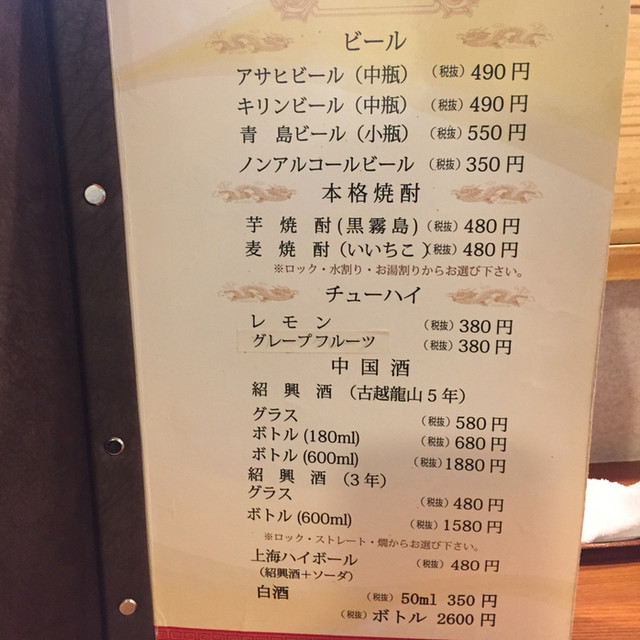 ビール
アサヒビール（中瓶）（税抜）490円
キリンビール（中瓶）（税抜）490円
青 島ビール（小瓶）（税抜）550円
ノンアルコールビール （税抜）350円
本格焼酎
芋 焼 酎(黒霧島)（税抜）480円
麦 焼 酎（いいちこ）（税抜）480円
※ロック・水割り・お湯割りからお選び下さい。
チューハイ
レ モ ン （税抜）380円
グレープフルーツ （税抜）380円
中国酒
紹 興 酒 （古越龍山5年）
グラス （税抜）580円
ボトル(180ml) （税抜）680円
ボトル(600ml) （税抜）1880円
紹 興 酒 （3年）
グラス （税抜）480円
ボトル(600ml) （税抜）1580円
※ロック・ストレート・燗からお選び下さい。
上海ハイボール （税抜）480円
（紹興酒＋ソーダ）
白酒 （税抜）50ml 350円
（税抜）ボトル 2600円